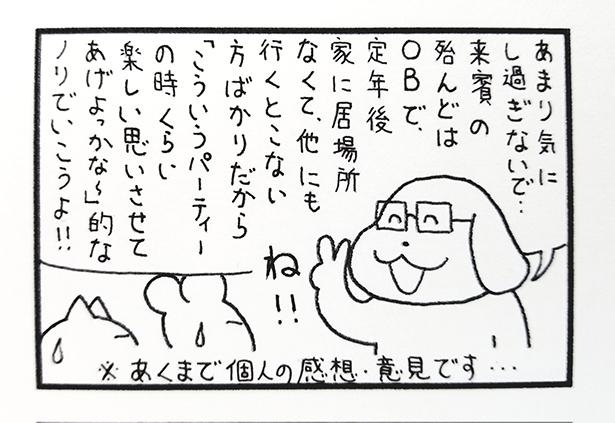 あまり気に
し過ぎないで‥
来賓の
殆んどは
OBで、
定年後
家に居場所
なくて、他にも
行くとこない
方ばかりだから
「こういうパーティー
の時くらい
楽しい思いさせて
あげよっかな〜」的な
ノリで、いこうよ!!
ね!!
※あくまで個人の感想・意見です…